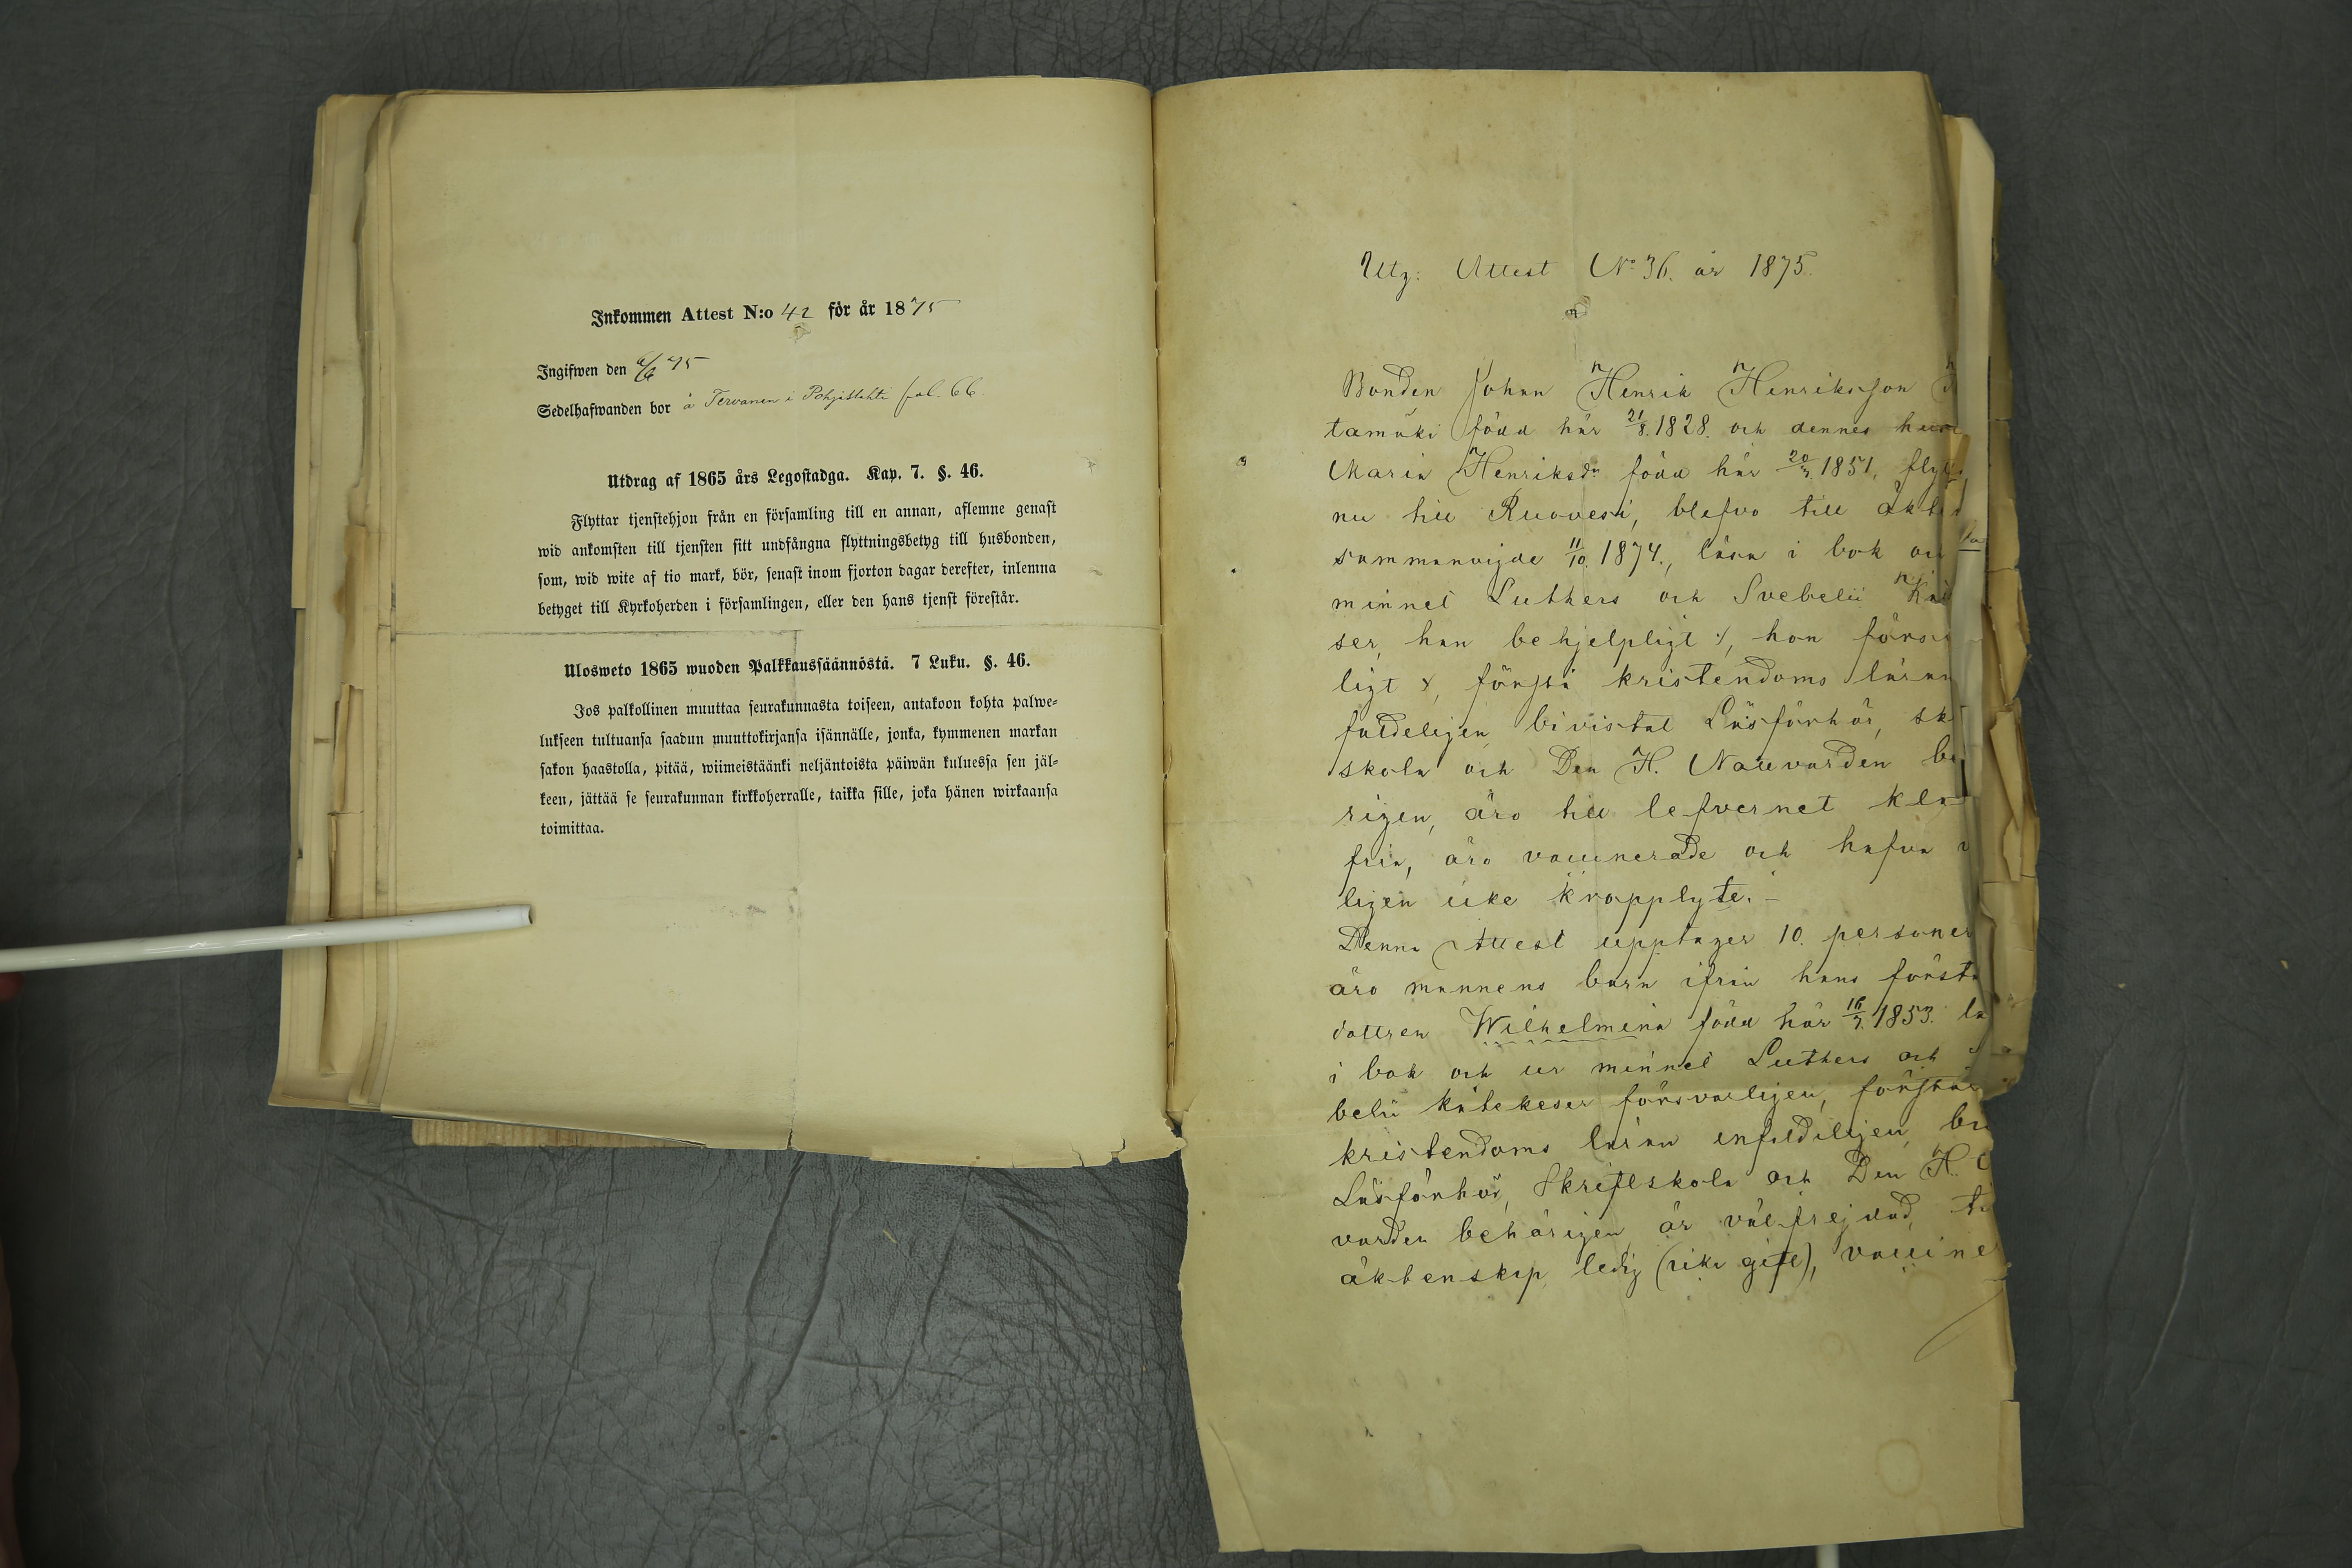 Inkommen Attest N:o 42 för år 1875
Ingifwen den 6/6 75
Sedelhafwanden bor å Tervanen i Pohjislahti fol. 66.
Utdrag af 1865 års Legostadga. Kap. 7. §. 46.
Flyttar tjenstehjon från en församling till en annan, aflemne genast
wid ankomsten till tjensten sitt undfångna flyttningsbetyg till husbonden,
som, wid wite af tio mark, bör, senast inom fjorton dagar derefter, inlemna
betyget till Kyrkoherden i församlingen, eller den hans tjenst förestår.
Ulosweto 1865 wuoden Palkkaussäännöstä. 7 Luku. §. 46.
Jos palkollinen muuttaa seurakunnasta toiseen, antakoon kohta palwe-
lukseen tultuansa saadun muuttokirjansa isännälle, jonka, kymmenen markan
sakon haastolla, pitää, wiimeistäänki neljäntoista päiwän kuluessa sen jäl-
keen, jättää se seurakunnan kirkkoherralle, taikka sille, joka hänen wirkaansa
toimittaa.
Utg: Attest No 36. år 1875.
Bonden Johan Henrik Henriksson
tamäki född här 21/8. 1828. och dennes
Maria Henriksdr född här 1851.
nu till Ruovesi, blefvo till
sammanvigde 11/10. 1874., läsa i bok
minnet Luthers och Svebelii
ser, han behjelpligt ·/., hon
ligt ×, förstå kristendoms läran
faldeligen bivistat Läsförhör,
skola och Den H. Nattvarden
rigen, äro till lefvernet
fria, äro vaccinerade och hafva
ligen icke kropplyte. –
Denna Attest upptager 10. personer
äro mannens barn ifrån hans första
dottren Wilhelmina född här 16/7. 1853.
i bok och ur minnet Luthers och
belii katekeser försvarligen,
kristendoms läran enfaldeligen,
Läsförhör, Skriftskola och Den H.
varden behörigen, är välfrejdad,
äktenskap ledig (icke gift),